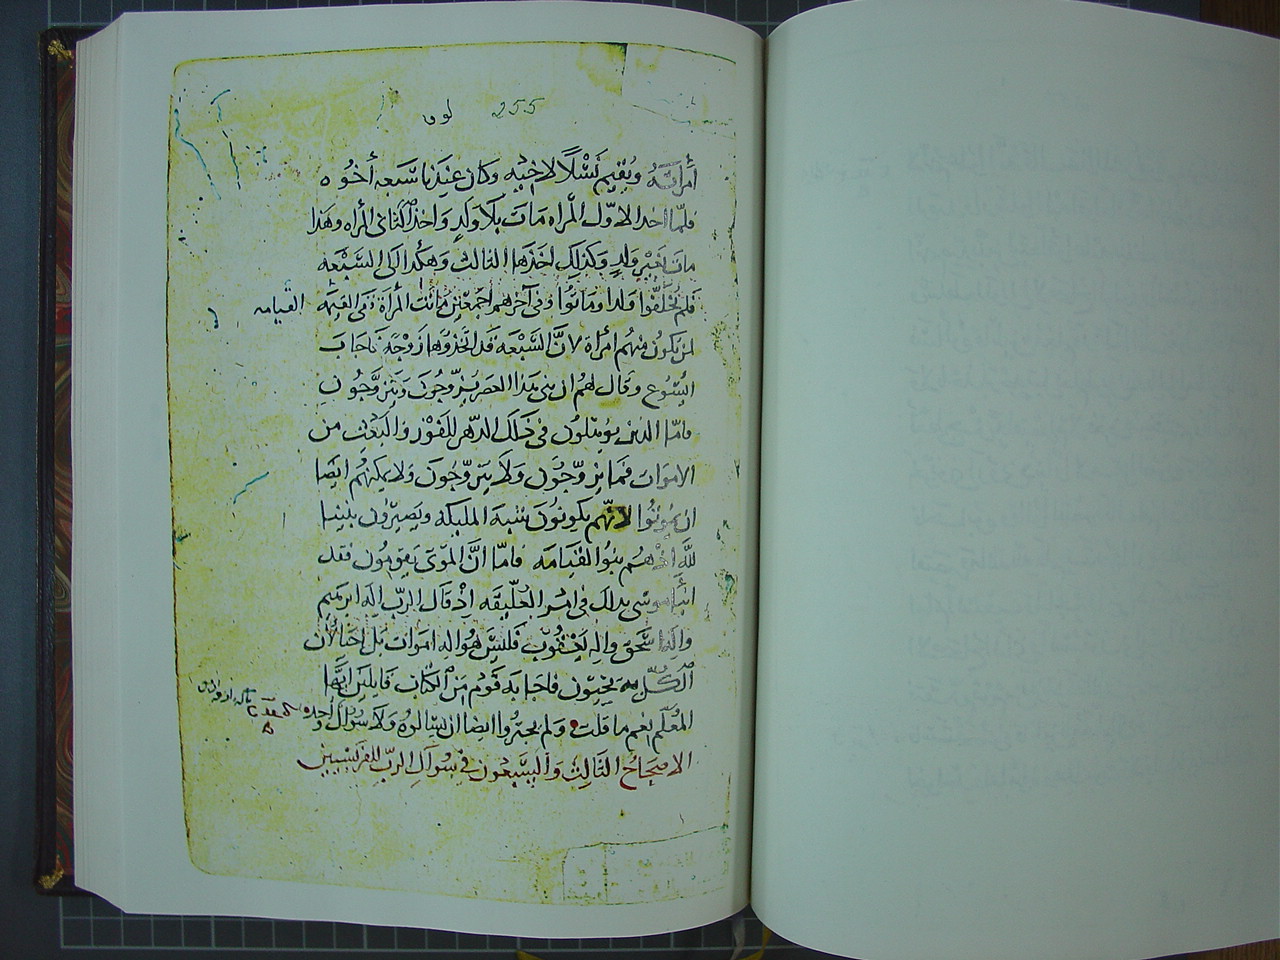 لوق 255
امراته ويقيم نَسْلًا لاخيه وكان عندنا سبعه أخوه
فلمّا اخد الاوّل المراه مات بلا ولدٍ واخذ الثانى المراه وهذا
مات بغير ولدٍ وكذلك اخذها الثالث وهكدا الى السَّبْعه
فلم يُخلّفُوا ولدا وماتوا وفى آخرهم اجمعين ماتت المرأة ففى القيمه
القيامه
لمن تكون منهم امرأة لانَّ السَّبْعه قد اتخذوها زَوْجَة فاجاب
ايسُوع وقال لهُم ان بنى هذا العصر يزوّجُونَ ويتزوَّجُون
فامّا الدين يوهلون فى ذلك الدّهر للفَوْز والبَعْث من
الاموات فما يزوّجُون ولا يتزوّجُونَ ولا يمكنهُم ايضا
ان يموتُوا لانّهم يكونُونَ شبه المليكه ويصيرُون بنينا
للّه اذ هم بنُو القيامه فامّا انَّ الموتى يقومُون فقد
انبأ موسى بدلك فى امر العُلّيقه اِذْ قال الربّ اِله ابرهيم
واله اسحق واله يعْقُوب فليسَ هو اله اموات بل احيا لأن
الكُلّ به يحيون فاجابه قوم من الكتاب قايلين ايُّها
المعُلّم نعم ما قلت ولم يجتَرُوا ايضا ان يسالوهُ ولا سُوال واحده
الاصحاحُ الثَّالِثُ والسَّبعُون فى سُوآلِ الربّ للفريسيين